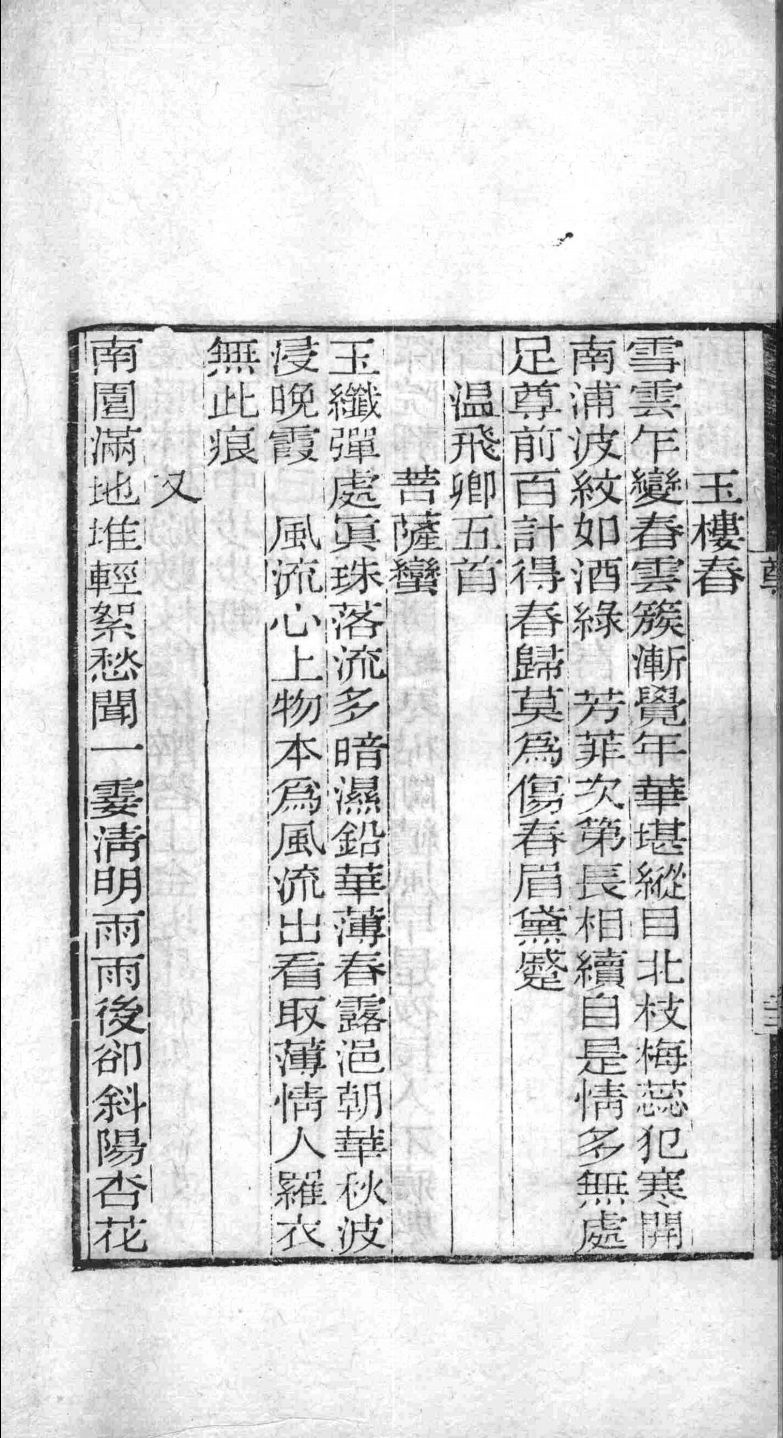 玉樓春
雪雲乍變春雲簇漸覺年華堪縱目北枝梅蕊犯寒開
南浦波紋如酒綠　芳菲次第長相續自是情多無處
足尊前百計得春歸莫爲傷春眉黛蹙
温飛卿五首
菩薩蠻
玉纖彈處眞珠落流多暗濕鉛華薄春露浥朝華秋波
浸晚霞　風流心上物本爲風流出看取薄情人羅衣
無此痕
又
南園滿地堆輕絮愁聞一霎淸明雨雨後卻斜陽杏花